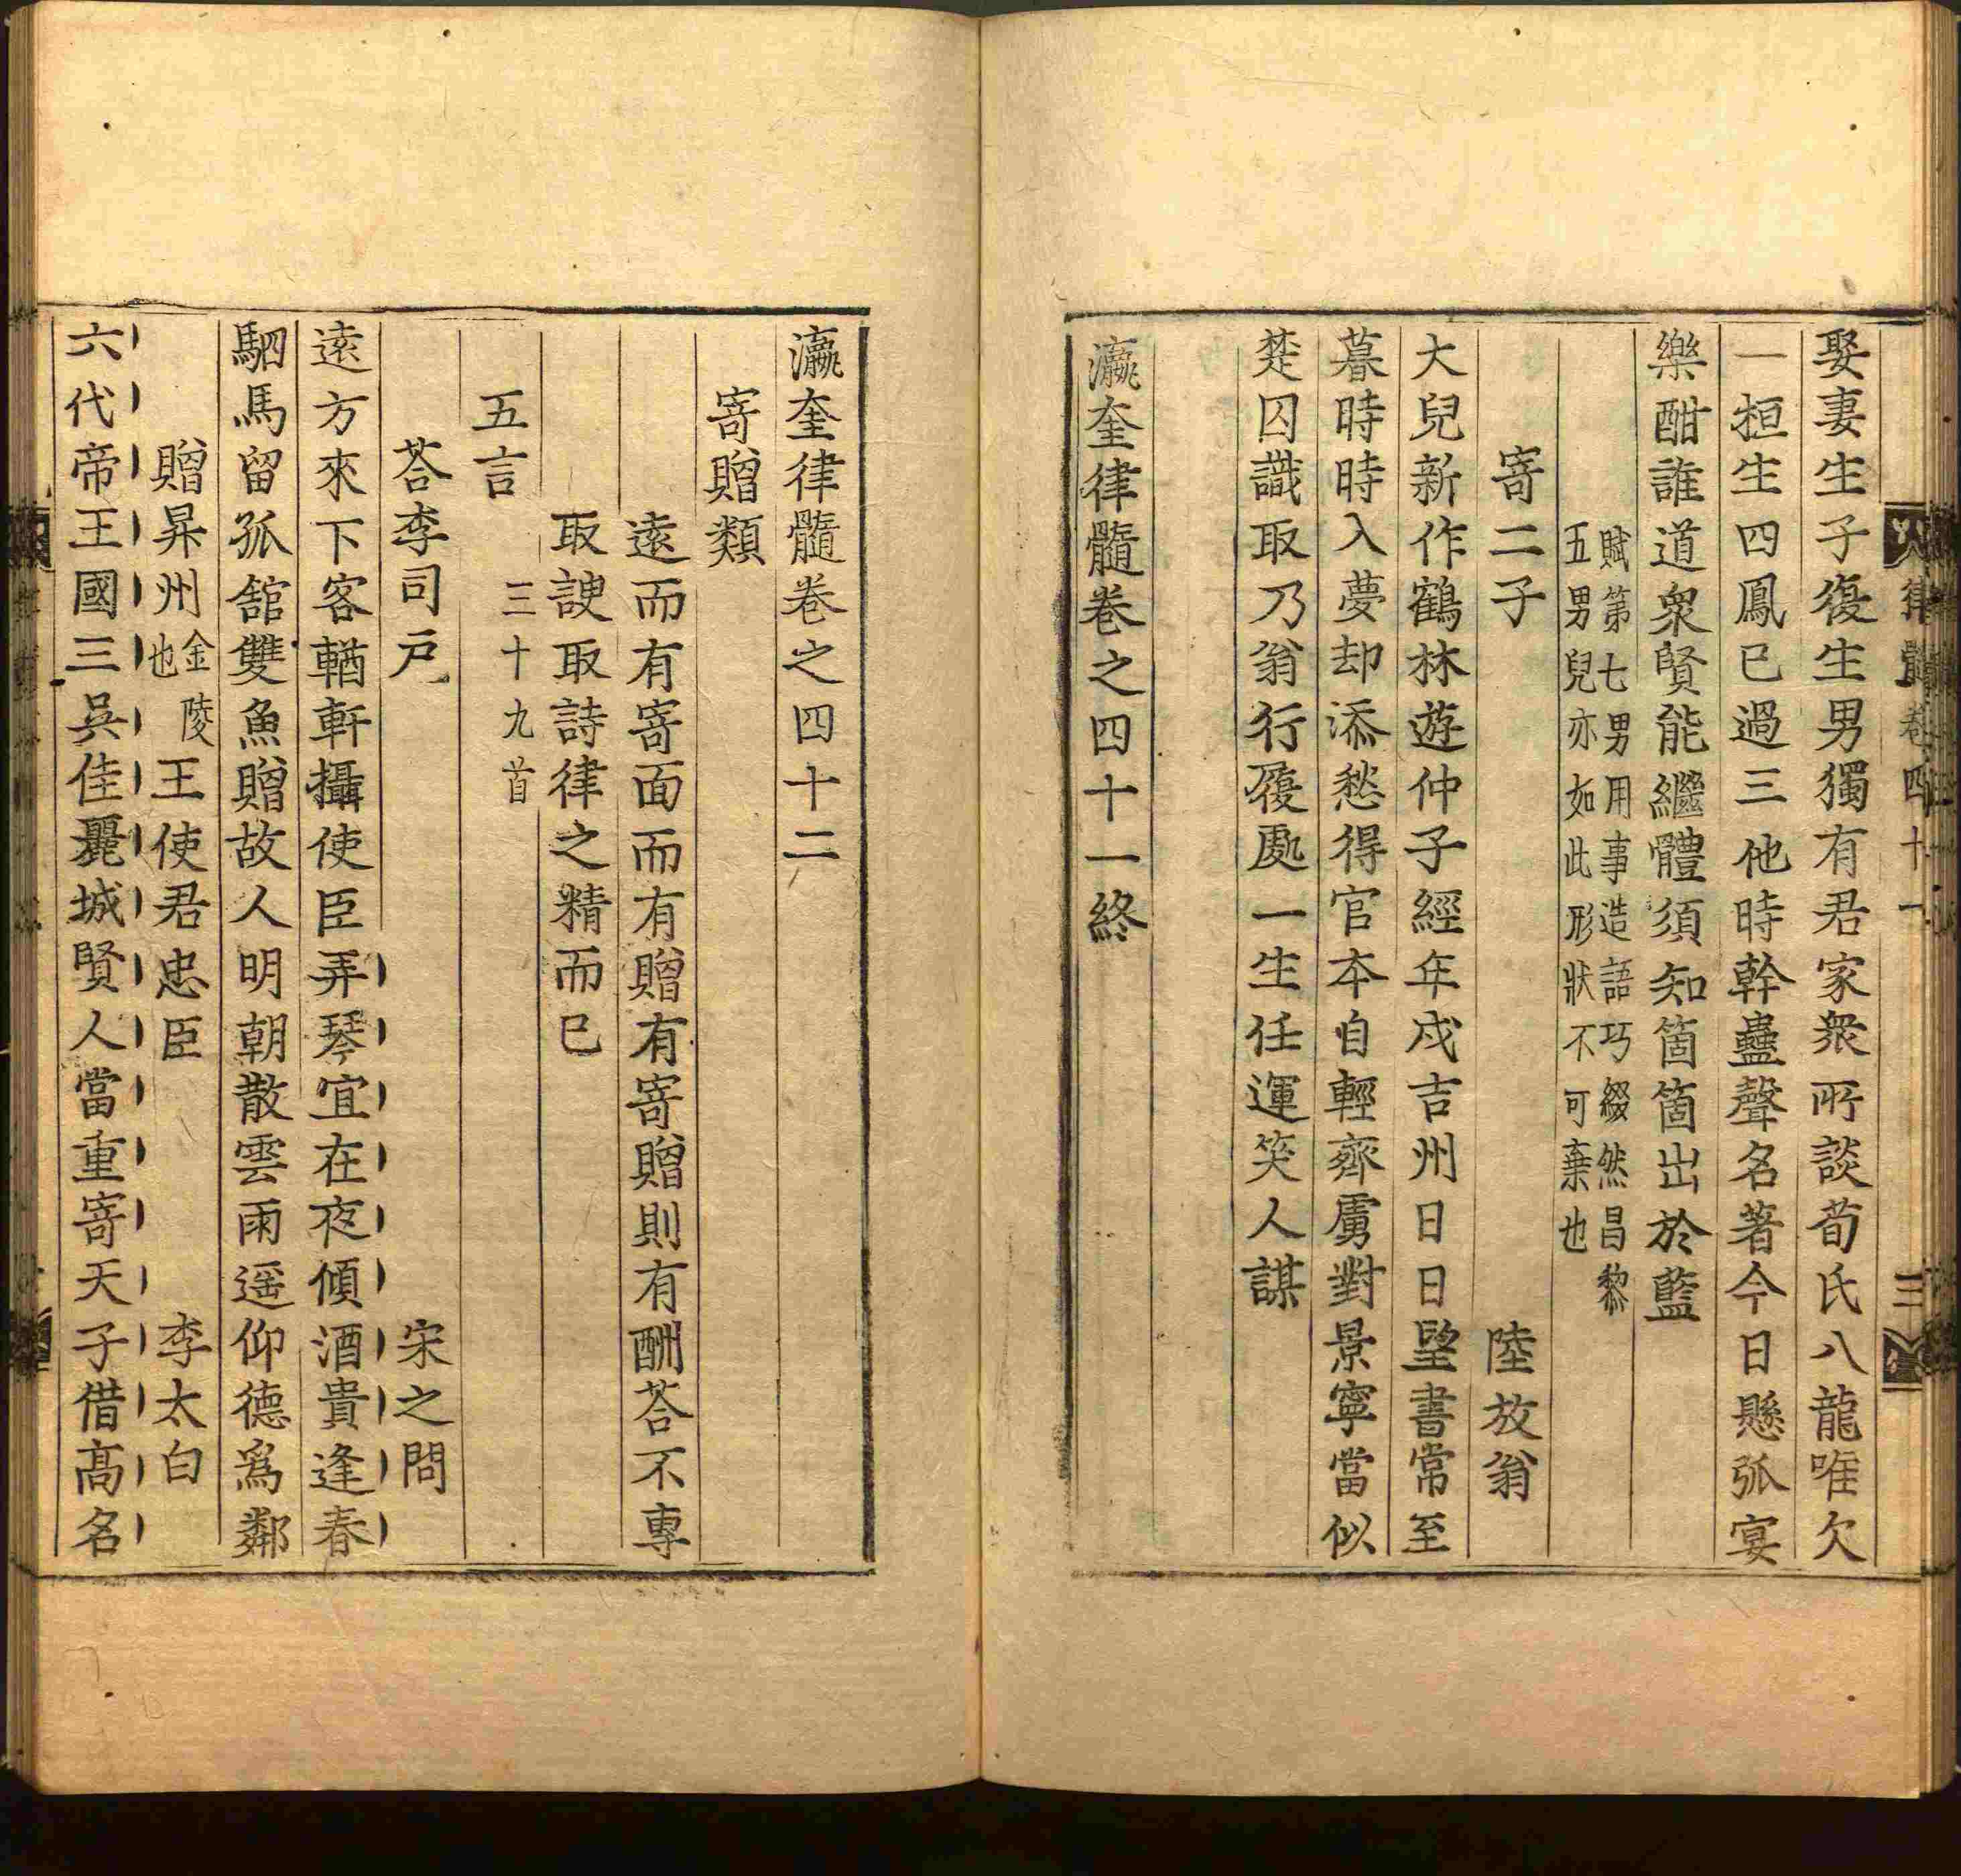 娶妻生子復生男獨有君家衆所談荀氏八龍唯欠
一桓生四鳳已過三他時幹蠱聲名著今日懸弧宴
樂酣誰道衆賢能繼體須知箇箇出於藍
賦第七男用事造語巧綴然昌黎
五男兒亦如此形狀不可棄也
寄二子 陸放翁
大兒新作鶴林遊仲子經年戍吉州日日望書常至
暮時時入夢却添愁得官本自輕齊虜對景寧當似
楚囚識取乃翁行履處一生任運笑人謀
瀛奎律髓卷之四十一終
律髓卷四十一 三
瀛奎律髓卷之四十二
寄贈類
遠而有寄面而有贈有寄贈則有酬荅不專
取諛取詩律之精而已
五言 三十九首
荅李司戶 宋之問
遠方來下客輶軒攝使臣弄琴宜在夜傾酒貴逢春
駟馬留孤舘雙魚贈故人明朝散雲雨遥仰德爲鄰
贈昇州金陵也王使君忠臣 李太白
六代帝王國三吳佳麗城賢人當重寄天子借高名